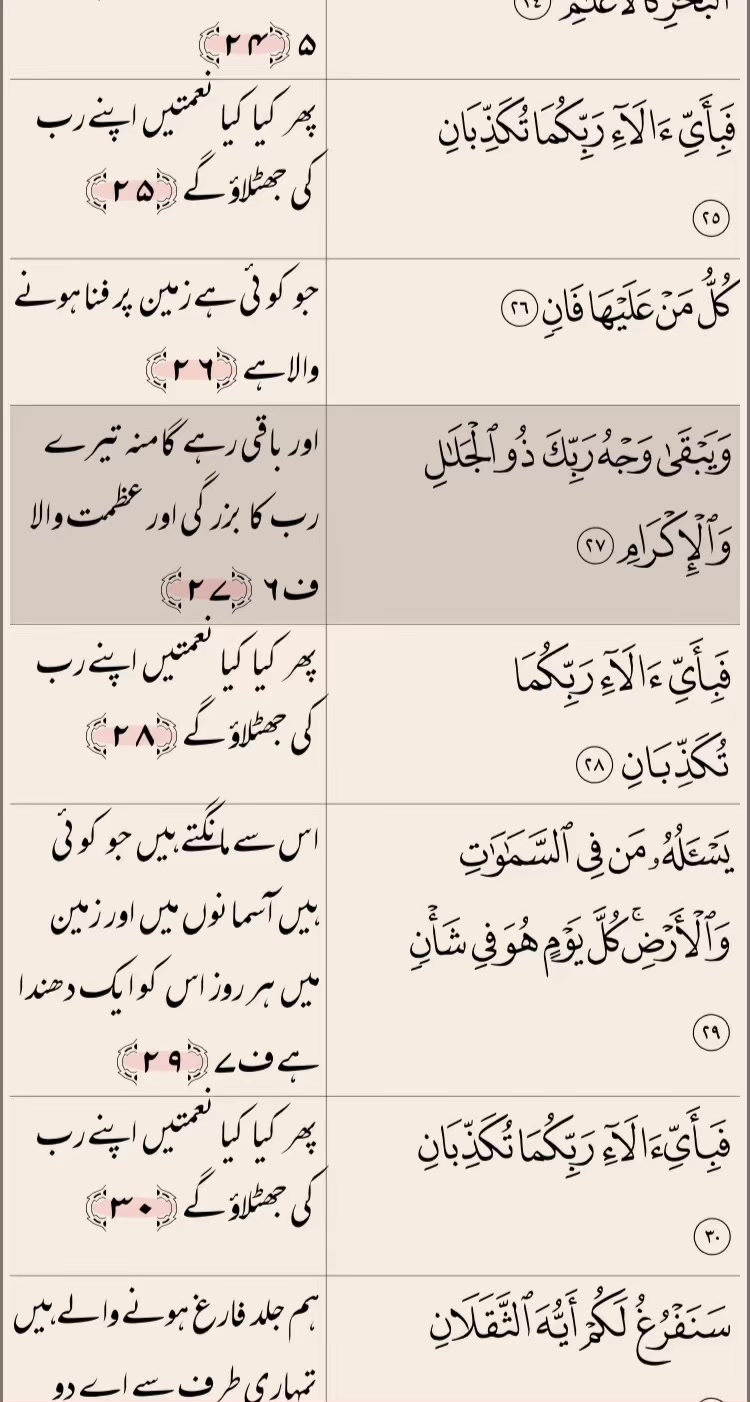 فَبِأَيِّ ءَالَآءِ رَبِّكُمَا تُكَذِّبَانِ
٢٥
۵ ﴿۲۴﴾
پھر کیا کیا نعمتیں اپنے رب
کی جھٹلاؤ گے ﴿۲۵﴾
كُلُّ مَنۡ عَلَيۡهَا فَانٖ ٢٦
جو کوئی ہے زمین پر فنا ہونے
والا ہے ﴿۲۶﴾
وَيَبۡقَىٰ وَجۡهُ رَبِّكَ ذُو ٱلۡجَلَٰلِ
وَٱلۡإِكۡرَامِ ٢٧
اور باقی رہے گا منہ تیرے
رب کا بزرگی اور عظمت والا
ف۶ ﴿۲۷﴾
فَبِأَيِّ ءَالَآءِ رَبِّكُمَا
تُكَذِّبَانِ ٢٨
پھر کیا کیا نعمتیں اپنے رب
کی جھٹلاؤ گے ﴿۲۸﴾
يَسۡـَٔلُهُۥ مَن فِي ٱلسَّمَٰوَٰتِ
وَٱلۡأَرۡضِۚ كُلَّ يَوۡمٍ هُوَ فِي شَأۡنٖ
٢٩
اس سے مانگتے ہیں جو کوئی
ہیں آسمانوں میں اور زمین
میں ہر روز اس کو ایک دھندا
ہے ف۷ ﴿۲۹﴾
فَبِأَيِّ ءَالَآءِ رَبِّكُمَا تُكَذِّبَانِ
٣٠
پھر کیا کیا نعمتیں اپنے رب
کی جھٹلاؤ گے ﴿۳۰﴾
سَنَفۡرُغُ لَكُمۡ أَيُّهَ ٱلثَّقَلَانِ
ہم جلد فارغ ہونے والے ہیں
تمہاری طرف سے اے دو